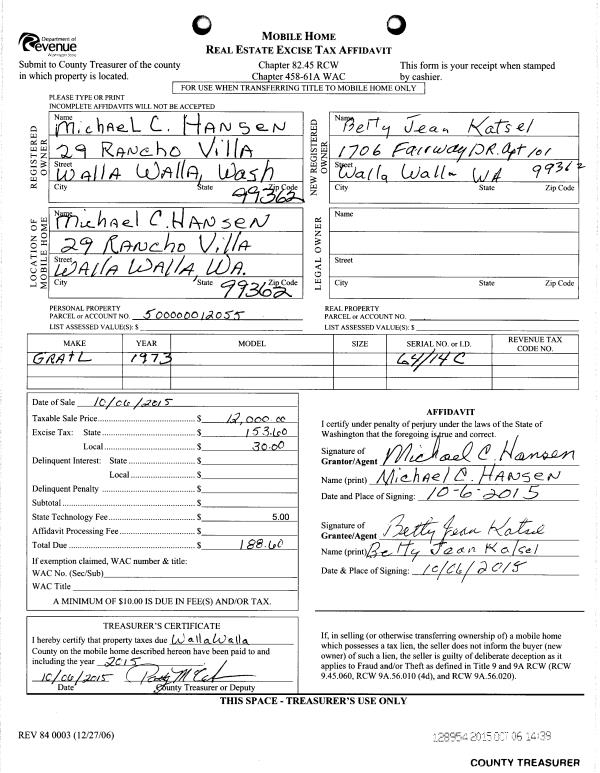 Department of
Revenue
Washington State
MOBILE HOME
REAL ESTATE EXCISE TAX AFFIDAVIT
Submit to County Treasurer of the county
in which property is located.
Chapter 82.45 RCW
Chapter 458-61A WAC
This form is your receipt when stamped
by cashier.
FOR USE WHEN TRANSFERRING TITLE TO MOBILE HOME ONLY
PLEASE TYPE OR PRINT
INCOMPLETE AFFIDAVITS WILL NOT BE ACCEPTED
REGISTERED OWNER
Name Michael C. Hansen
29 Rancho Villa
Street Walla Walla, Wash
City State Zip Code 99362
NEW REGISTERED OWNER
Name Betty Jean Katsel
1706 Fairway DR. Apt 101
Street Walla Walla WA 99362
City State Zip Code
LOCATION OF MOBILE HOME
Name Michael C. Hansen
29 Rancho Villa
Street Walla Walla, WA.
City State Zip Code 99362
LEGAL OWNER
Name
Street
City State Zip Code
PERSONAL PROPERTY
PARCEL or ACCOUNT NO. 500000012055
LIST ASSESSED VALUE(S): $
REAL PROPERTY
PARCEL or ACCOUNT NO.
LIST ASSESSED VALUE(S): $
MAKE YEAR MODEL SIZE SERIAL NO. or I.D. REVENUE TAX CODE NO.
GRATL 1973 64/14C
Date of Sale 10/06/2015
Taxable Sale Price $ 12,000.00
Excise Tax: State $ 153.60
Local $ 30.00
Delinquent Interest: State $
Local $
Delinquent Penalty $
Subtotal $
State Technology Fee $ 5.00
Affidavit Processing Fee $
Total Due $ 188.60
If exemption claimed, WAC number & title:
WAC No. (Sec/Sub)
WAC Title
A MINIMUM OF $10.00 IS DUE IN FEE(S) AND/OR TAX.
AFFIDAVIT
I certify under penalty of perjury under the laws of the State of
Washington that the foregoing is true and correct.
Signature of
Grantor/Agent Michael C. Hansen
Name (print) Michael C. Hansen
Date and Place of Signing: 10-6-2015
Signature of
Grantee/Agent Betty Jean Katsel
Name (print) Betty Jean Katsel
Date & Place of Signing: 10/06/2015
TREASURER'S CERTIFICATE
I hereby certify that property taxes due Walla Walla
County on the mobile home described hereon have been paid to and
including the year 2015
10/06/2015
Date County Treasurer or Deputy
If, in selling (or otherwise transferring ownership of) a mobile home
which possesses a tax lien, the seller does not inform the buyer (new
owner) of such a lien, the seller is guilty of deliberate deception as it
applies to Fraud and/or Theft as defined in Title 9 and 9A RCW (RCW
9.45.060, RCW 9A.56.010 (4d), and RCW 9A.56.020).
THIS SPACE - TREASURER'S USE ONLY
REV 84 0003 (12/27/06)
128954 2015 OCT 06 14:39
COUNTY TREASURER